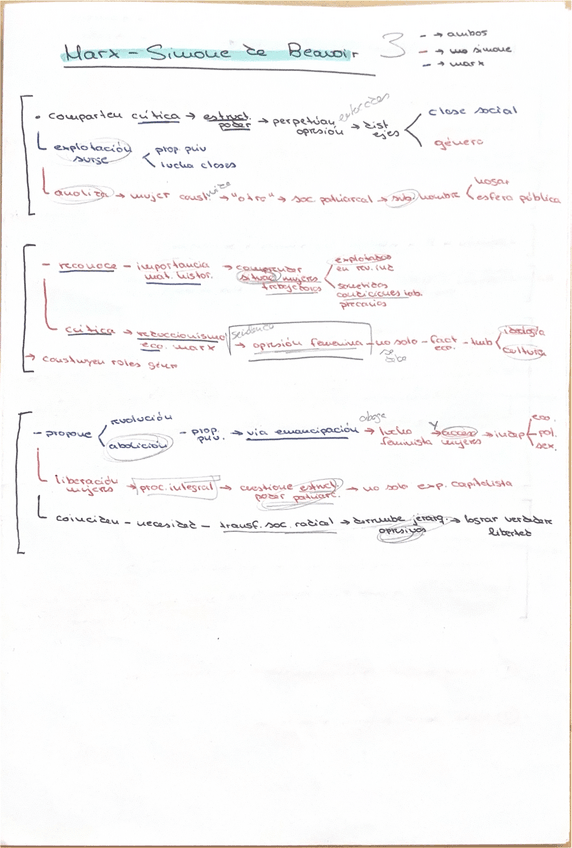 Marx - Simone de Beavoir 3
- → ambos
- → mo simone
- → marx
• comparten crítica → estruct. poder → perpetúan opresión → dist ejes
clase social
género
explotación surge
prop. priv
lucha clases
analiza → mujer const. → "otro" → soc patriarcal → sub. hombre
hogar
esfera pública
- reconoce - importancia mat. histor. → comprender situac mujeres trabajadoras
explotadas en rev. ind
sometidas condiciones lab. precarias
crítica → reduccionismo eco. marx → opresión femenina - no solo - fact eco. - tmb
ideología
cultura
→ construyen roles gener
- propone
revolución
abolición
- prop. priv. → vía emancipación → lucha feminista → acceso mujeres → indep
eco.
pol.
sex.
liberación mujeres → proc. integral → cuestione estruct poder patriarc. → no solo exp. capitalista
coinciden - necesidad - transf. soc. radial → derrumbe jerarq. opresivas → lograr verdadera libertad